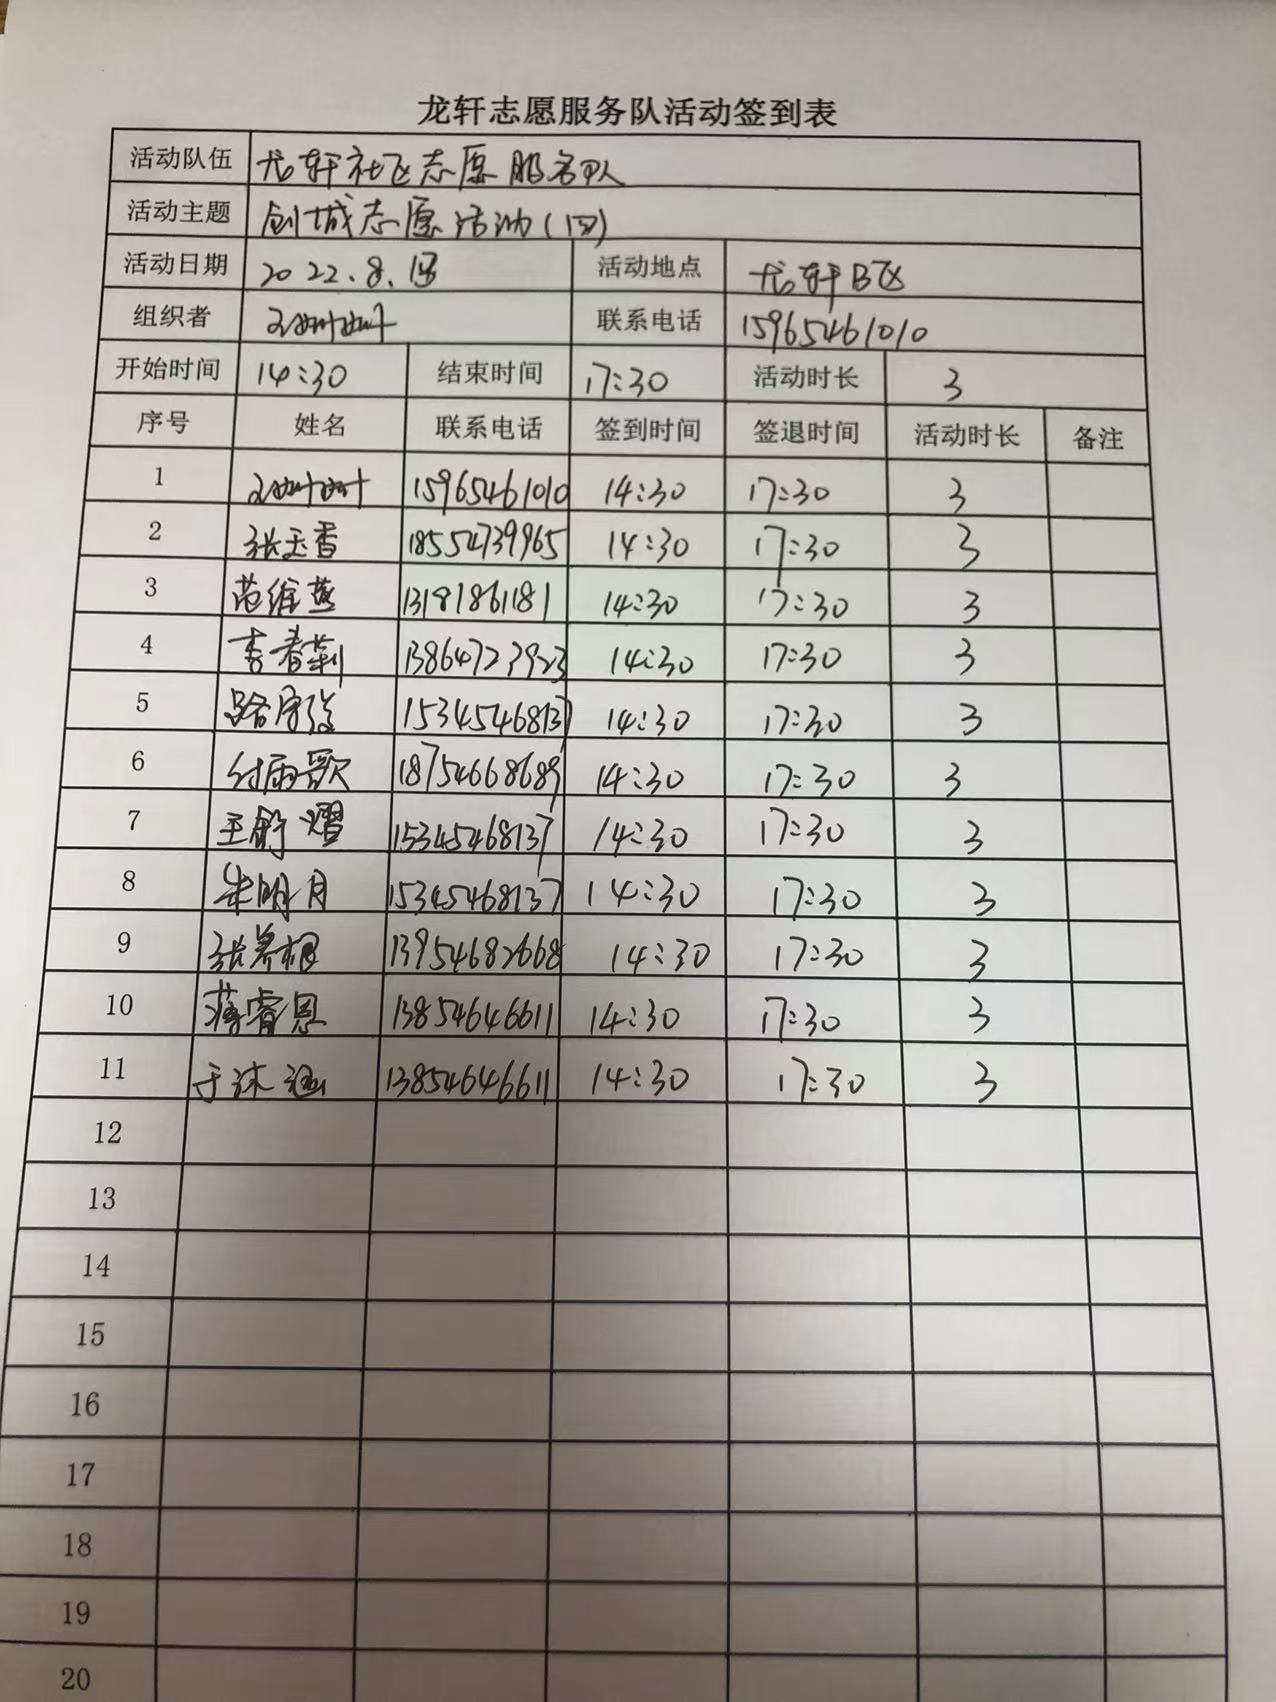 龙轩志愿服务队活动签到表
活动队伍 龙轩社区志愿服务队
活动主题 创城志愿活动(四)
活动日期 2022.8. 活动地点 龙轩B区
组织者 联系电话 15965461010
开始时间 14:30 结束时间 17:30 活动时长 3
序号 姓名 联系电话 签到时间 签退时间 活动时长 备注
1 15965461010 14:30 17:30 3
2 张玉香 18554739965 14:30 17:30 3
3 范维燕 13181861181 14:30 17:30 3
4 李春莉 13864723923 14:30 17:30 3
5 15345468137 14:30 17:30 3
6 付雨歌 18754668689 14:30 17:30 3
7 王舒熠 15345468137 14:30 17:30 3
8 朱明月 15345468137 14:30 17:30 3
9 13954682668 14:30 17:30 3
10 蒋睿恩 13854646611 14:30 17:30 3
11 于沐涵 13854646611 14:30 17:30 3
12
13
14
15
16
17
18
19
20